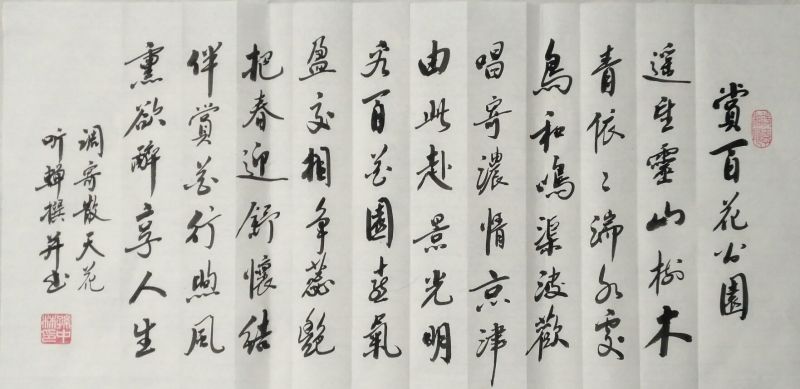 賞百花公園
遥望靈山樹木
青依〻湍水處
鳥和鳴渠波歡
唱寄濃情京津
由此赴景光明
百花園喜氣
盈交相争蕊艷
把春迎舒懷結
伴賞花行煦風
熏欲醉享人生
调寄散天花
听蝉撰并书